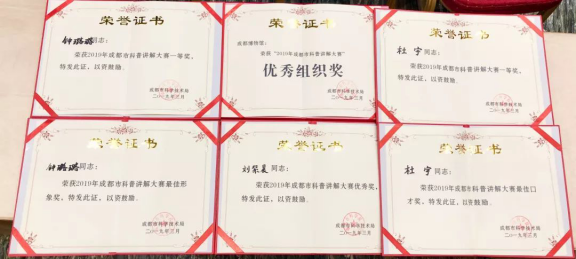 荣誉证书
钟璐璐同志：
荣获2019年成都市科普讲解大赛一等奖，
特发此证，以资鼓励。
成都市科学技术局
二〇一九年三月
荣誉证书
成都博物馆：
荣获“2019年成都市科普讲解大赛”
优秀组织奖
成都市科学技术局
二〇一九年三月
荣誉证书
杜宇同志：
荣获2019年成都市科普讲解大赛一等奖，
特发此证，以资鼓励。
成都市科学技术局
二〇一九年三月
荣誉证书
钟璐璐同志：
荣获2019年成都市科普讲解大赛最佳形
象奖，特发此证，以资鼓励。
成都市科学技术局
二〇一九年三月
荣誉证书
同志：
荣获2019年成都市科普讲解大赛优秀奖，
特发此证，以资鼓励。
成都市科学技术局
二〇一九年三月
荣誉证书
杜宇同志：
荣获2019年成都市科普讲解大赛最佳口
才奖，特发此证，以资鼓励。
成都市科学技术局
二〇一九年三月